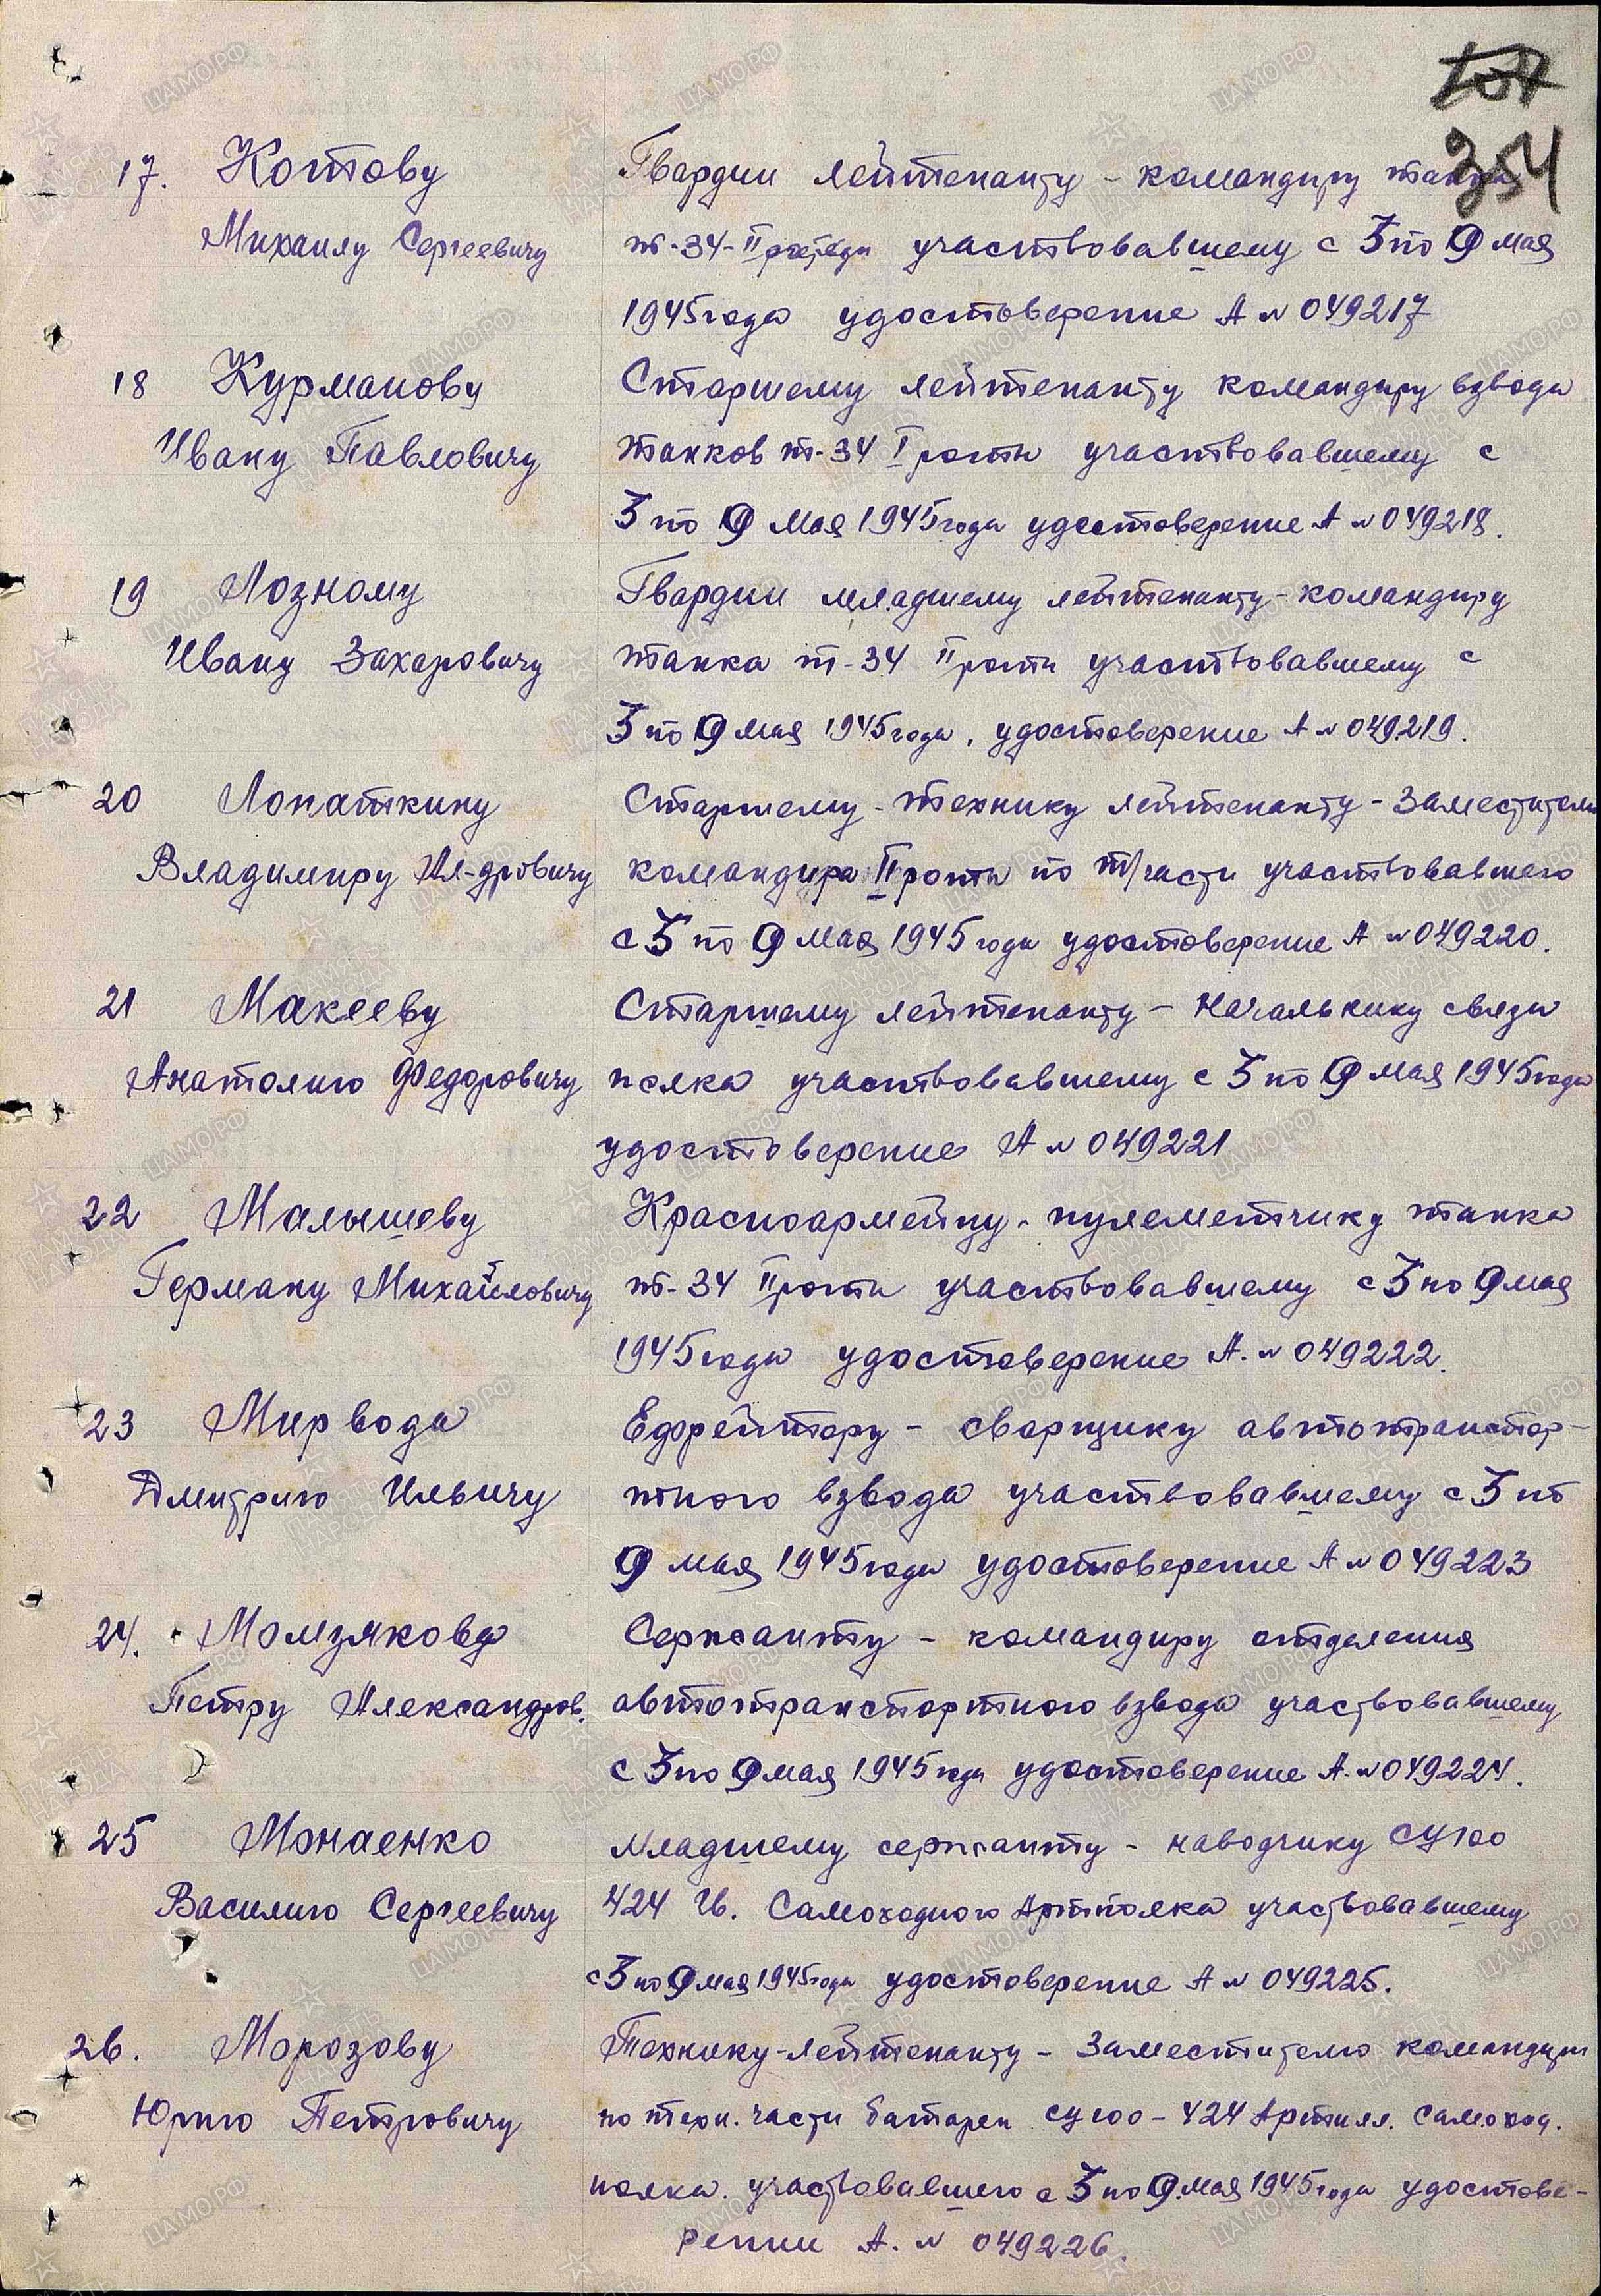 354
17. Котову Гвардии лейтенанту - командиру танка
Михаилу Сергеевичу т-34-II роты участвовавшему с 3 по 9 мая
1945 года удостоверение А № 049217
18 Курманову Старшему лейтенанту командиру взвода
Ивану Павловичу танков т-34 I роты участвовавшему с
3 по 9 мая 1945 года удостоверение А № 049218.
19 Лозному Гвардии младшему лейтенанту - командиру
Ивану Захаровичу танка т-34 II роты участвовавшему с
3 по 9 мая 1945 года, удостоверение А № 049219.
20 Лопаткину Старшему - технику лейтенанту - Заместителю
Владимиру Ал-дровичу командира II роты по т/части участвовавшего
с 3 по 9 мая 1945 года удостоверение А № 049220.
21 Макееву Старшему лейтенанту - Начальнику связи
Анатолию Федоровичу полка участвовавшему с 3 по 9 мая 1945 года
удостоверение А № 049221
22 Малышеву Красноармейцу - пулеметчику танка
Герману Михайловичу т-34 II роты участвовавшему с 3 по 9 мая
1945 года удостоверение А. № 049222.
23 Мирвода Ефрейтору - сварщику автотранспор-
Дмитрию Ильичу тного взвода участвовавшему с 3 по
9 мая 1945 года удостоверение А № 049223
24. Момзякову Сержанту - командиру отделения
Петру Александров. автотранспортного взвода участвовавшему
с 3 по 9 мая 1945 года удостоверение А. № 049224.
25 Монаенко Младшему сержанту - наводчику СУ 100
Василию Сергеевичу 424 Гв. Самоходного Артполка участвовавшему
с 3 по 9 мая 1945 года удостоверение А № 049225.
26. Морозову Технику-лейтенанту - Заместителю командира
Юрию Петровичу по техн. части батареи СУ 100 - 424 Артилл. самоход.
полка. участвовавшего с 3 по 9 мая 1945 года удостове-
рении А. № 049226.